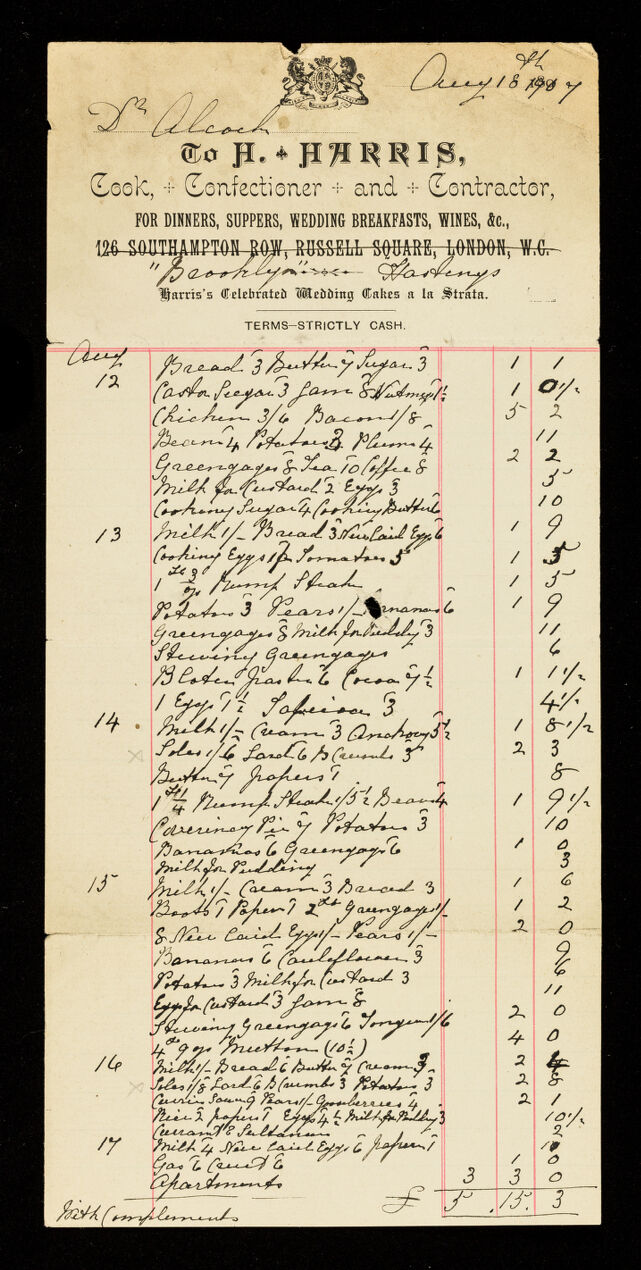 Aug 18th 1907
Dr Alcock
To H. HARRIS,
Cook, + Confectioner + and + Contractor,
FOR DINNERS, SUPPERS, WEDDING BREAKFASTS, WINES, &c.,
126 SOUTHAMPTON ROW, RUSSELL SQUARE, LONDON, W.C.
"Brooklyn" Hastings
Harris's Celebrated Wedding Cakes a la Strata.
TERMS—STRICTLY CASH.
Aug
12 Bread 3 Butter 7 Sugar 3 1 1
Castor Sugar 3 Jam 8 Nutmeg 1½ 1 0½
Chicken 3/6 Bacon 1/8 5 2
Beans 4 Potatoes 3 Plums 4 11
Greengages 8 Tea 10 Coffee 8 2 2
Milk for Custard 2 Eggs 3 5
Cooking Sugar 4 Cooking Butter 6 10
13 Milk 1/- Bread 3 New Laid Eggs 6 1 9
Cooking Eggs 1/- Tomatoes 5 1 5
Rump Steak 1 5
Potatoes 3 Pears 1/- Bananas 6 1 9
Greengages 8 Milk for Pudding 3 11
Stewing Greengages 6
Bloater paste 6 Cocoa 7½ 1 1½
1 Eggs 1½ Tapioca 3 4½
14 Milk 1/- Cream 3 Anchovy 5½ 1 8½
Soles 1/6 Lard 6 B Crumbs 3 2 3
Butter 7 papers 1 8
1 lb ¼ Rump Steak 1/5½ Beans 4 1 9½
Covering Pie 7 Potatoes 3 10
Bananas 6 Greengages 6 1 0
Milk for Pudding 3
15 Milk 1/- Cream 3 Bread 3 1 6
Boots 1 Paper 1 2 lbs Greengages 1/- 1 2
8 New Laid Eggs 1/- Pears 1/- 2 0
Bananas 6 Cauliflower 3 9
Potatoes 3 Milk for Custard 3 6
Eggs for Custard 3 Jam 8 11
Stewing Greengages 6 Tongue 1/6 2 0
4 lbs 9 ozs Mutton (10½) 4 0
16 Milk 1/- Bread 6 Butter 7 Cream 3 2 4
Soles 1/8 Lard 6 B Crumbs 3 Potatoes 3 2 8
Pears 1/- Gooseberries 4 2 1
Rice 2 papers 1 Eggs 4½ Milk for Pudding 3 10½
Currants & Sultanas 2
17 Milk 4 New Laid Eggs 6 paper 1 11
Gas 6 Cruet 6 1 0
Apartments 3 3 0
£ 5 . 15 . 3
With Complements